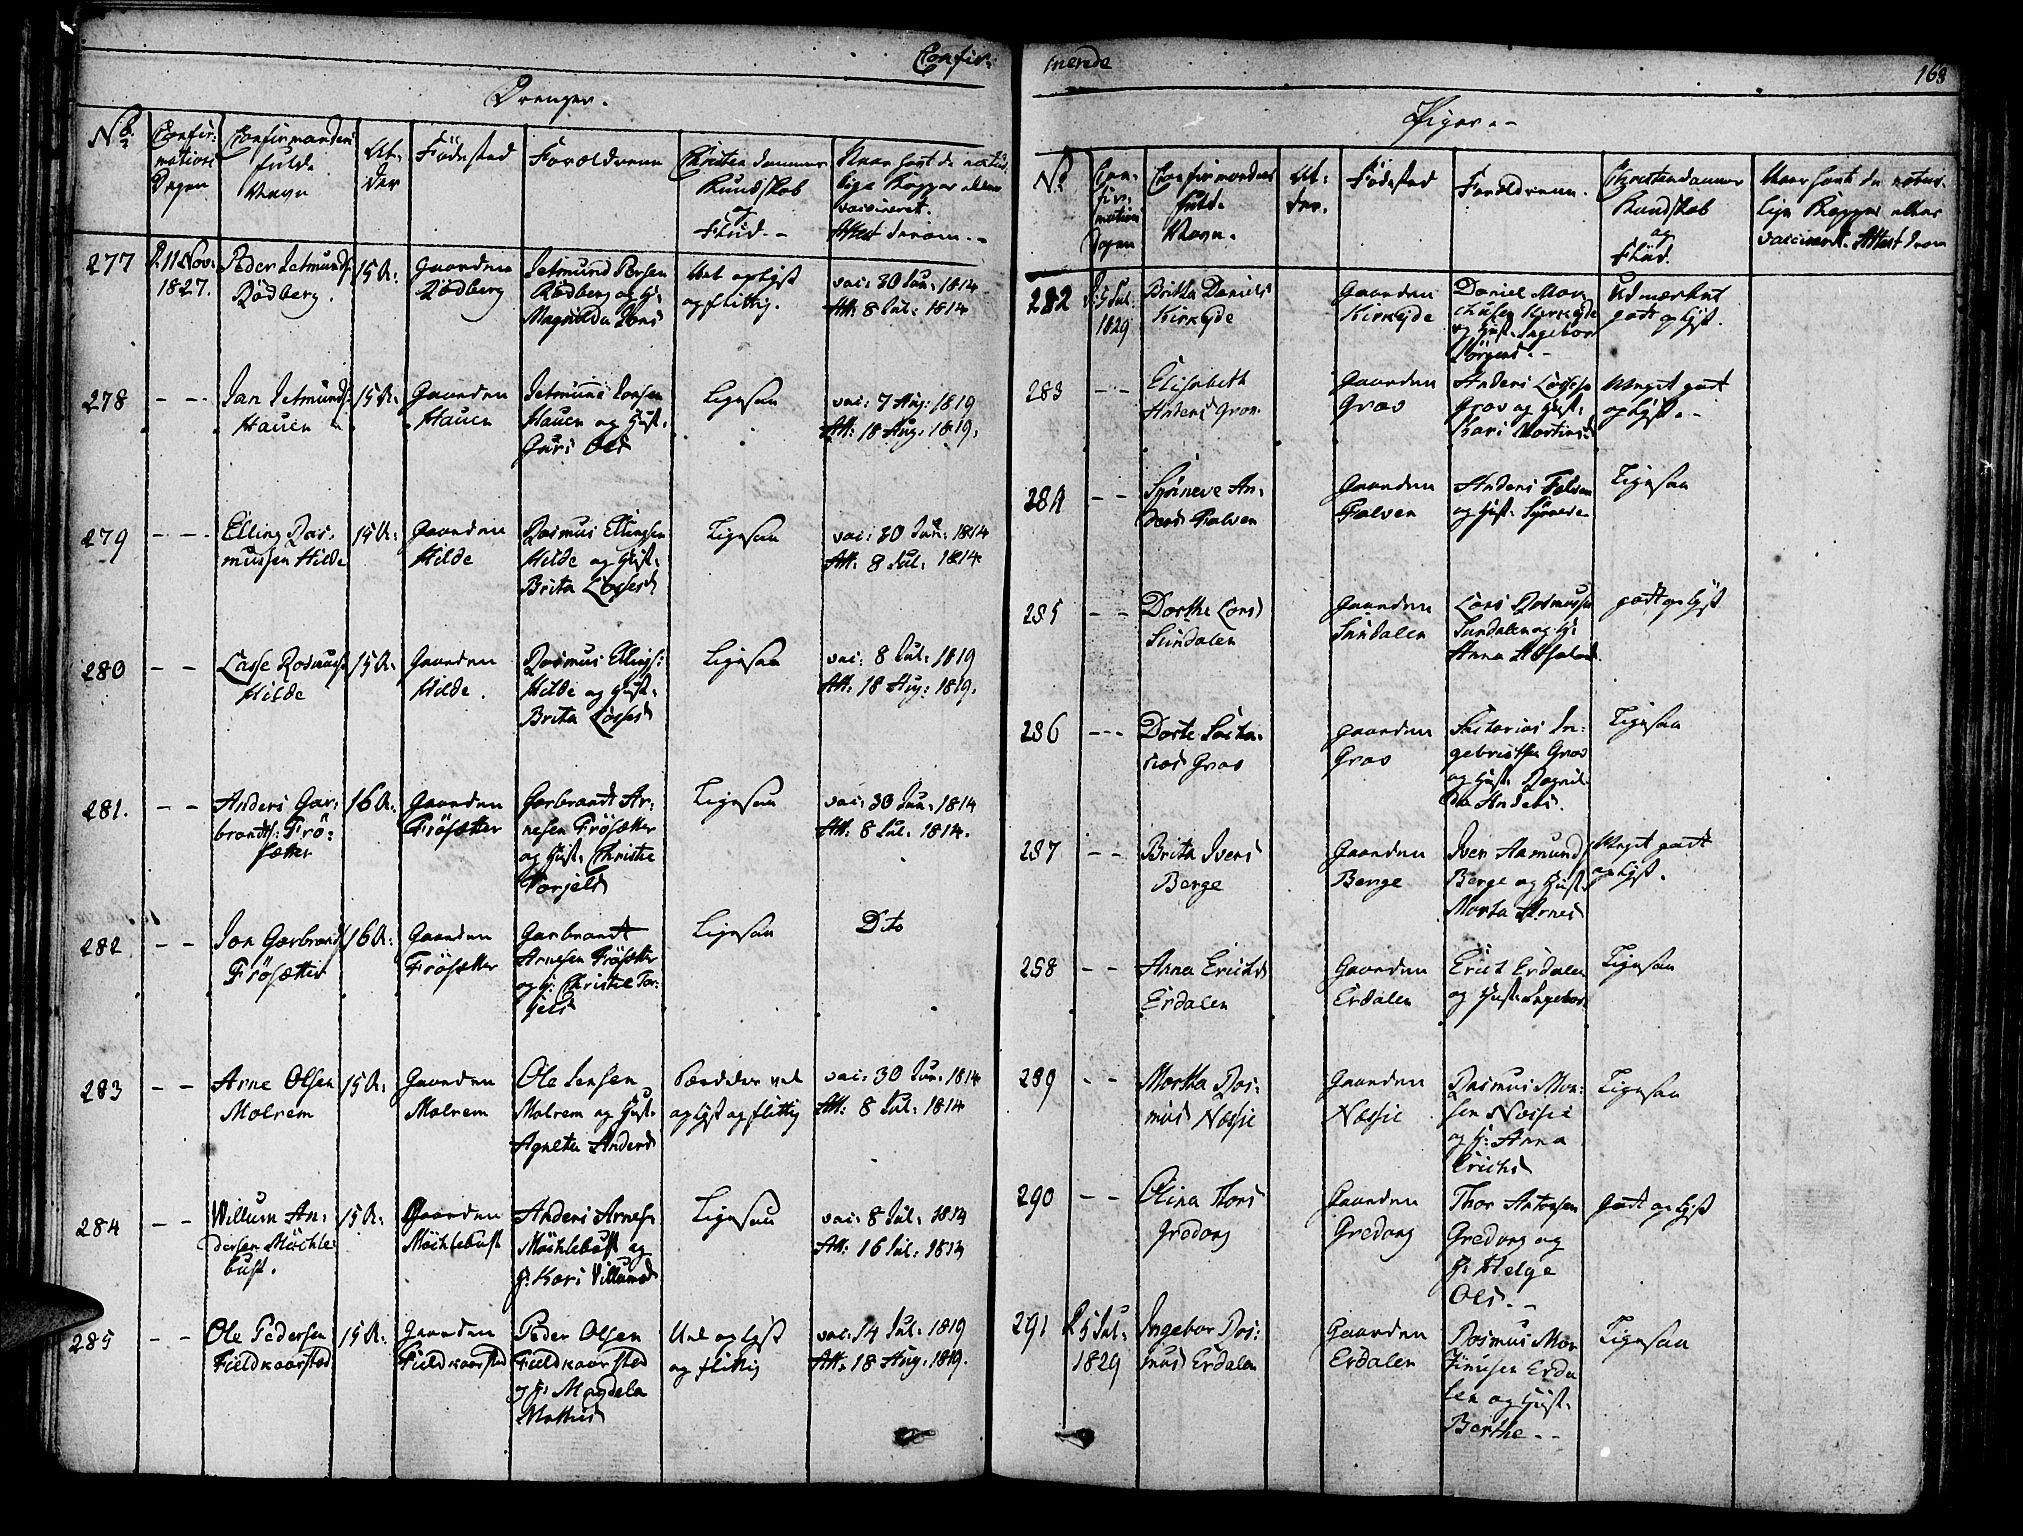 Confir-
Drenger.
No.
Confir-
mations
Dagen
Confirmandens
fulde
Navn
Al-
der
Födested
Forældrene
Christendommes
Kundskab
og
Flid.-
Naar havt de natur-
lige Kopper eller
vaccineret.
Attest derom.-
277
D. 11 Nov.
1827.
Peder Jetmunds:
Rödberg.
15 A:
Gaarden
Rödberg
Jetmund Persen
Rödberg og H:
Magnilda Jons
Vel oplyst
og flittig.
vac: 30 Jun: 1814
Att: 8 Jul: 1814
278
- -
Jan Jetmunds:
Hauen
15 A:
Gaarden
Hauen
Jetmund Jonsen
Hauen og Hust.
Guri Olsd
Ligesaa
vac: 7 Aug: 1819
Att: 18 Aug: 1819.
279
- -
Elling Ras-
mussen Hilde
15 A:
Gaarden
Hilde
Rasmus Ellingsen
Hilde og Hust:
Brita Lassesd
Ligesaa
vac: 30 Jun: 1814
Att: 8 Jul: 1814
280
- -
Lasse Rasmuss
Hilde
15 A:
Gaarden
Hilde.
Rasmus Ellings:
Hilde og Hust.
Brita Lassesd
Ligesaa
vac: 8 Jul: 1819
Att: 18 Aug: 1819.
281.
- -
Anders Gar-
brandts: Frö-
sætter
16 A:
Gaarden
Frösætter
Garbrandt Ar-
nesen Frösætter
og Hust: Christie
Torjelsd
Ligesaa
vac: 30 Jun: 1814
Att: 8 Jul: 1814.
282
- -
Jon Garbrand
Frösætter
16 A:
Gaarden
Frösætter
Garbrandt
Arnesen Frösætter
og H: Christie Tor-
jelsd
Ligesaa
Dito
283
- -
Arne Olsen
Molrem
15 A:
Gaarden
Molrem
Ole Jensen
Molrem og Hust:
Agneta Andersd
Særdeles vel
oplyst og flittig
vac: 30 Jun: 1814
Att: 8 Jul: 1814
284
- -
Willum An-
dersen Möckle-
bust.
15 A:
Gaarden
Möcklebust
Anders Arnes:
Möcklebust og
H: Kari Villumsd
Ligesaa
vac: 8 Jul: 1814
Att: 16 Jul: 1814
285
- -
Ole Pedersen
Fieldkaarstad
15 A:
Gaarden
Fieldkaarstad
Peder Olsen
Fieldkaarstad
og H: Magdela
Mathisd
Vel oplyst
og flittig
vac: 14 Jul: 1819
Att: 18 Aug: 1819.
merede
168
Piger.-
No.
Con-
fir-
mations
Dagen
Confirmandens
fulde
Navn.
Al-
der.
Födested
Forældrene.
Christendommes
Kundskab
og
Flid.
Naar havt de natur-
lige Kopper eller
vaccineret. Attest derom
282
D: 5 Jul:
1829
Britha Daniels
Kirkejde
Gaarden
Kirkejde
Daniel Mar-
thisen Kirkejde
og Hust: Ingebor
Jörgensd.-
Udmærket
godt oplyst.
283
- -
Elisabeth
Anders Grov
Gaarden
Grov
Anders Lasses:
Grov og Hust:
Kari Martinsd
Meget godt
oplyst.-
284
- -
Syrneve An-
dersd Folven
Gaarden
Folven
Anders Folven
og Hust: Syrneve
Ligesaa
285
- -
Dorthe Larsd
Sundalen
Gaarden
Sundalen
Lars Rasmussen
Sundalen og H:
Anna Absalonsd.
godt oplyst
286
- - -
Dorte Sacha-
riasd Grov
Gaarden
Grov
Sacharias In-
gebrigtsen Grov
og Hust: Ragnil-
da Andersd.
Ligesaa
287
- -
Brita Ivers
Berge
Gaarden
Berge
Iver Aamunds
Berge og Hust:
Marta Arnesd
Meget godt
oplyst.
258
- -
Anna Erichsd
Erdalen
Gaarden
Erdalen
Erich Erdalen
og Hust: Ingebor
Ligesaa
289
- -
Martha Ras-
musd Nossie
Gaarden
Nossie
Rasmus Mon-
sen Nossie
og H: Anna
Erichsd
Ligesaa
290
- -
Olina Thorsd
Gredong
Gaarden
Gredong
Thor Antonsen
Gredong og
H: Helge
Olsd.-
godt oplyst
291
D 5 Jul:
1829
Ingebor Ras-
musd Erdalen
Gaarden
Erdalen
Rasmus Mor-
tinusen Erda-
len og Hust:
Berthe.-
Ligesaa